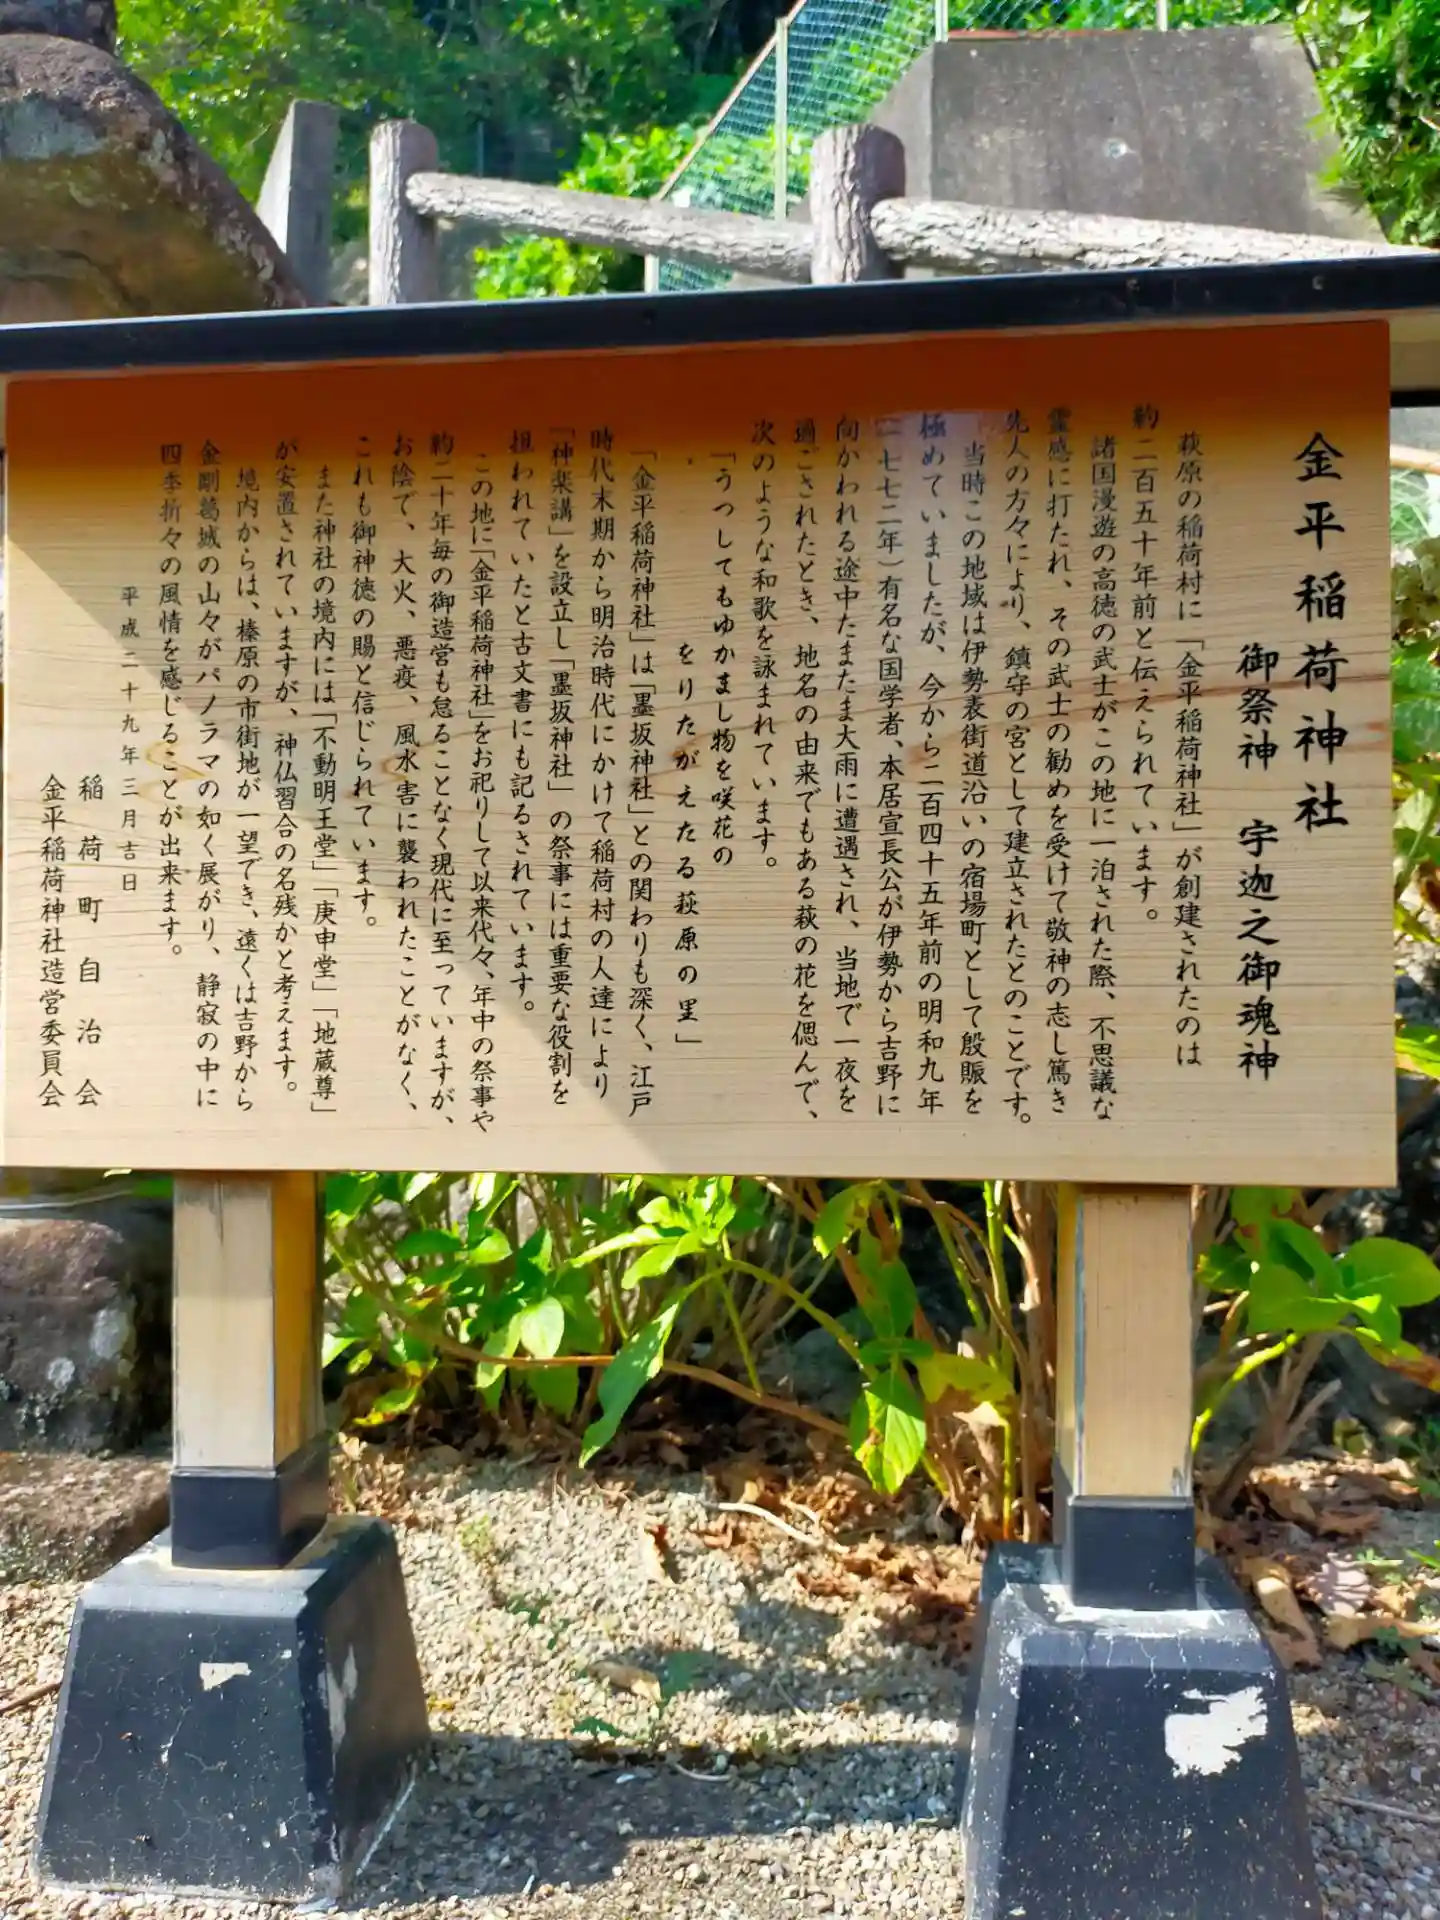 金平稲荷神社
御祭神　宇迦之御魂神
萩原の稲荷村に「金平稲荷神社」が創建されたのは
約二百五十年前と伝えられています。
諸国漫遊の高徳の武士がこの地に一泊された際、不思議な
霊感に打たれ、その武士の勧めを受けて敬神の志し篤き
先人の方々により、鎮守の宮として建立されたとのことです。
当時この地域は伊勢表街道沿いの宿場町として殷賑を
極めていましたが、今から二百四十五年前の明和九年
(一七七二年)有名な国学者、本居宣長公が伊勢から吉野に
向かわれる途中たまたま大雨に遭遇され、当地で一夜を
過ごされたとき、地名の由来でもある萩の花を偲んで、
次のような和歌を詠まれています。
「うつしてもゆかまし物を咲花の
をりたがえたる萩原の里」
「金平稲荷神社」は「墨坂神社」との関わりも深く、江戸
時代末期から明治時代にかけて稲荷村の人達により
「神楽講」を設立し「墨坂神社」の祭事には重要な役割を
担われていたと古文書にも記るされています。
この地に「金平稲荷神社」をお祀りして以来代々、年中の祭事や
約二十年毎の御造営も怠ることなく現代に至っていますが、
お陰で、大火、悪疫、風水害に襲われたことがなく、
これも御神徳の賜と信じられています。
また神社の境内には「不動明王堂」「庚申堂」「地蔵尊」
が安置されていますが、神仏習合の名残かと考えます。
境内からは、榛原の市街地が一望でき、遠くは吉野から
金剛葛城の山々がパノラマの如く展がり、静寂の中に
四季折々の風情を感じることが出来ます。
平成二十九年三月吉日
稲荷町自治会
金平稲荷神社造営委員会